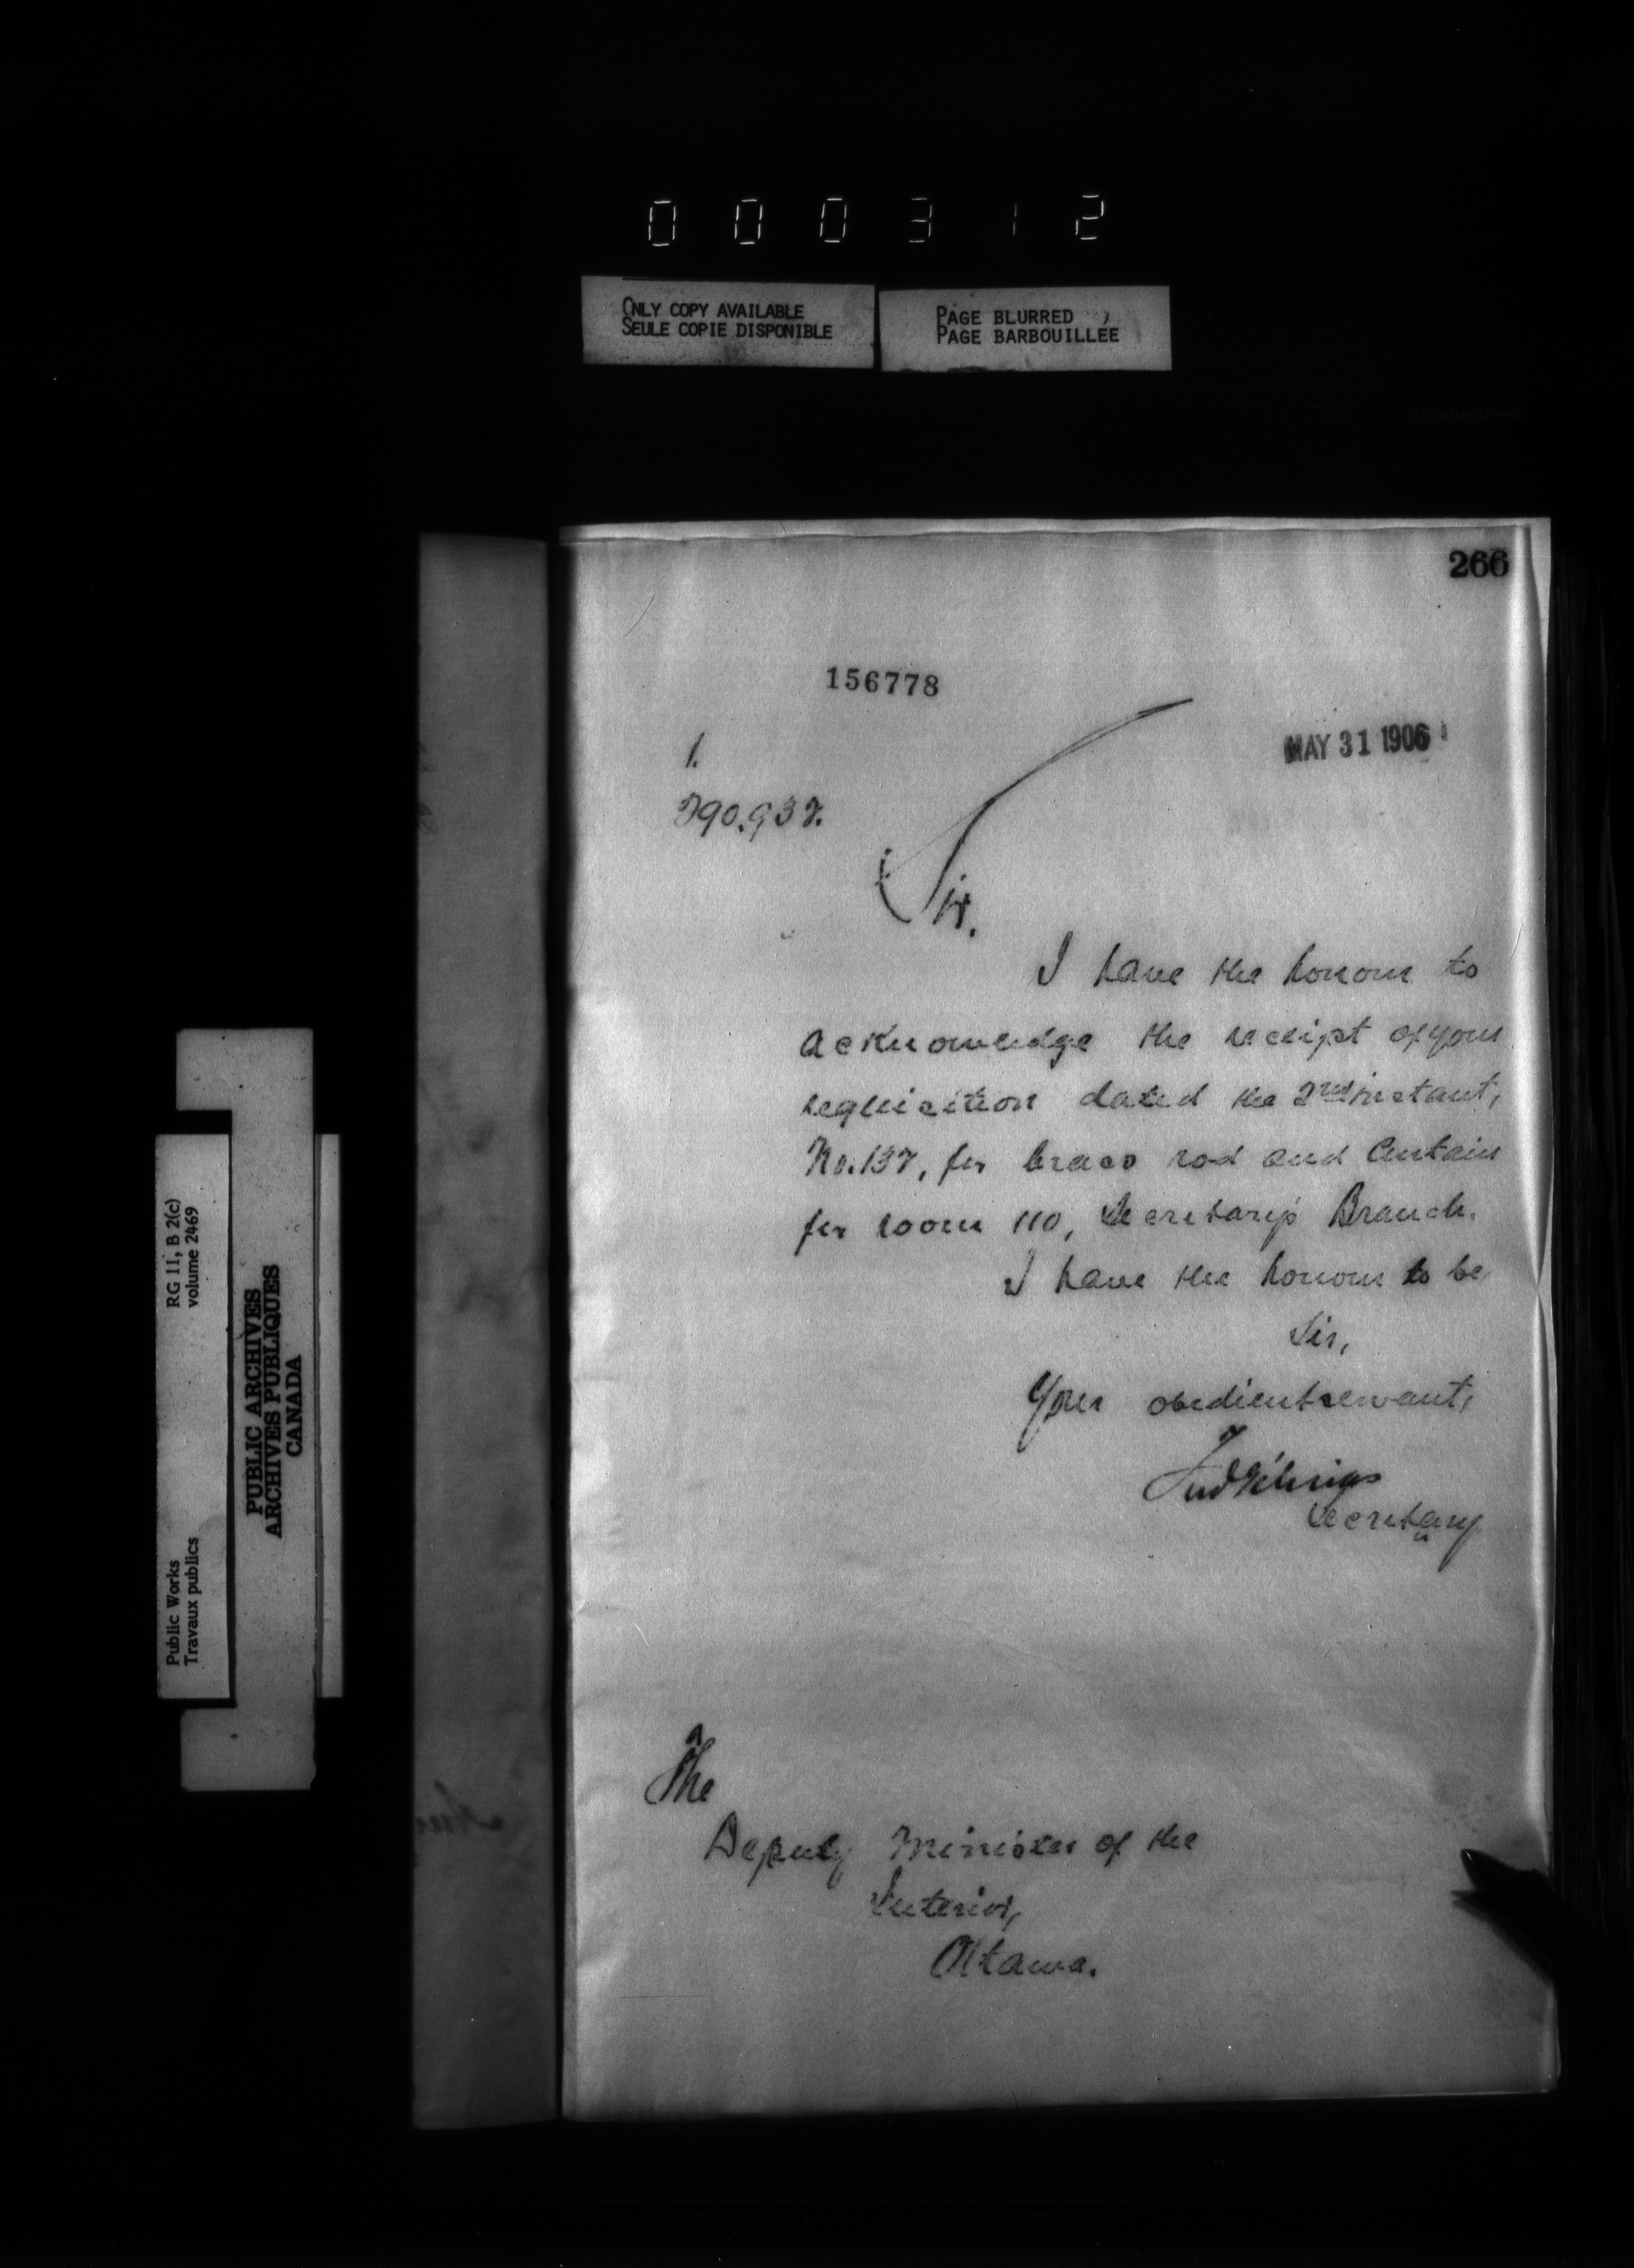 000312
ONLY COPY AVAILABLE
SEULE COPIE DISPONIBLE
PAGE BLURRED
PAGE BARBOUILLEE
266
156778
MAY 31 1906
1.
290.937.
Sir.
I have the honour to
acknowledge the receipt of your
requisition dated the 2nd instant,
No. 137, for brass rod and Curtain
for room 110, Secretary's Branch.
I have the honour to be,
Sir,
Your obedient servant,
Fred Gélinas
Secretary
The
Deputy Minister of the
Interior,
Ottawa.
RG 11, B 2(c)
volume 2469
Public Works
Travaux publics
PUBLIC ARCHIVES
ARCHIVES PUBLIQUES
CANADA